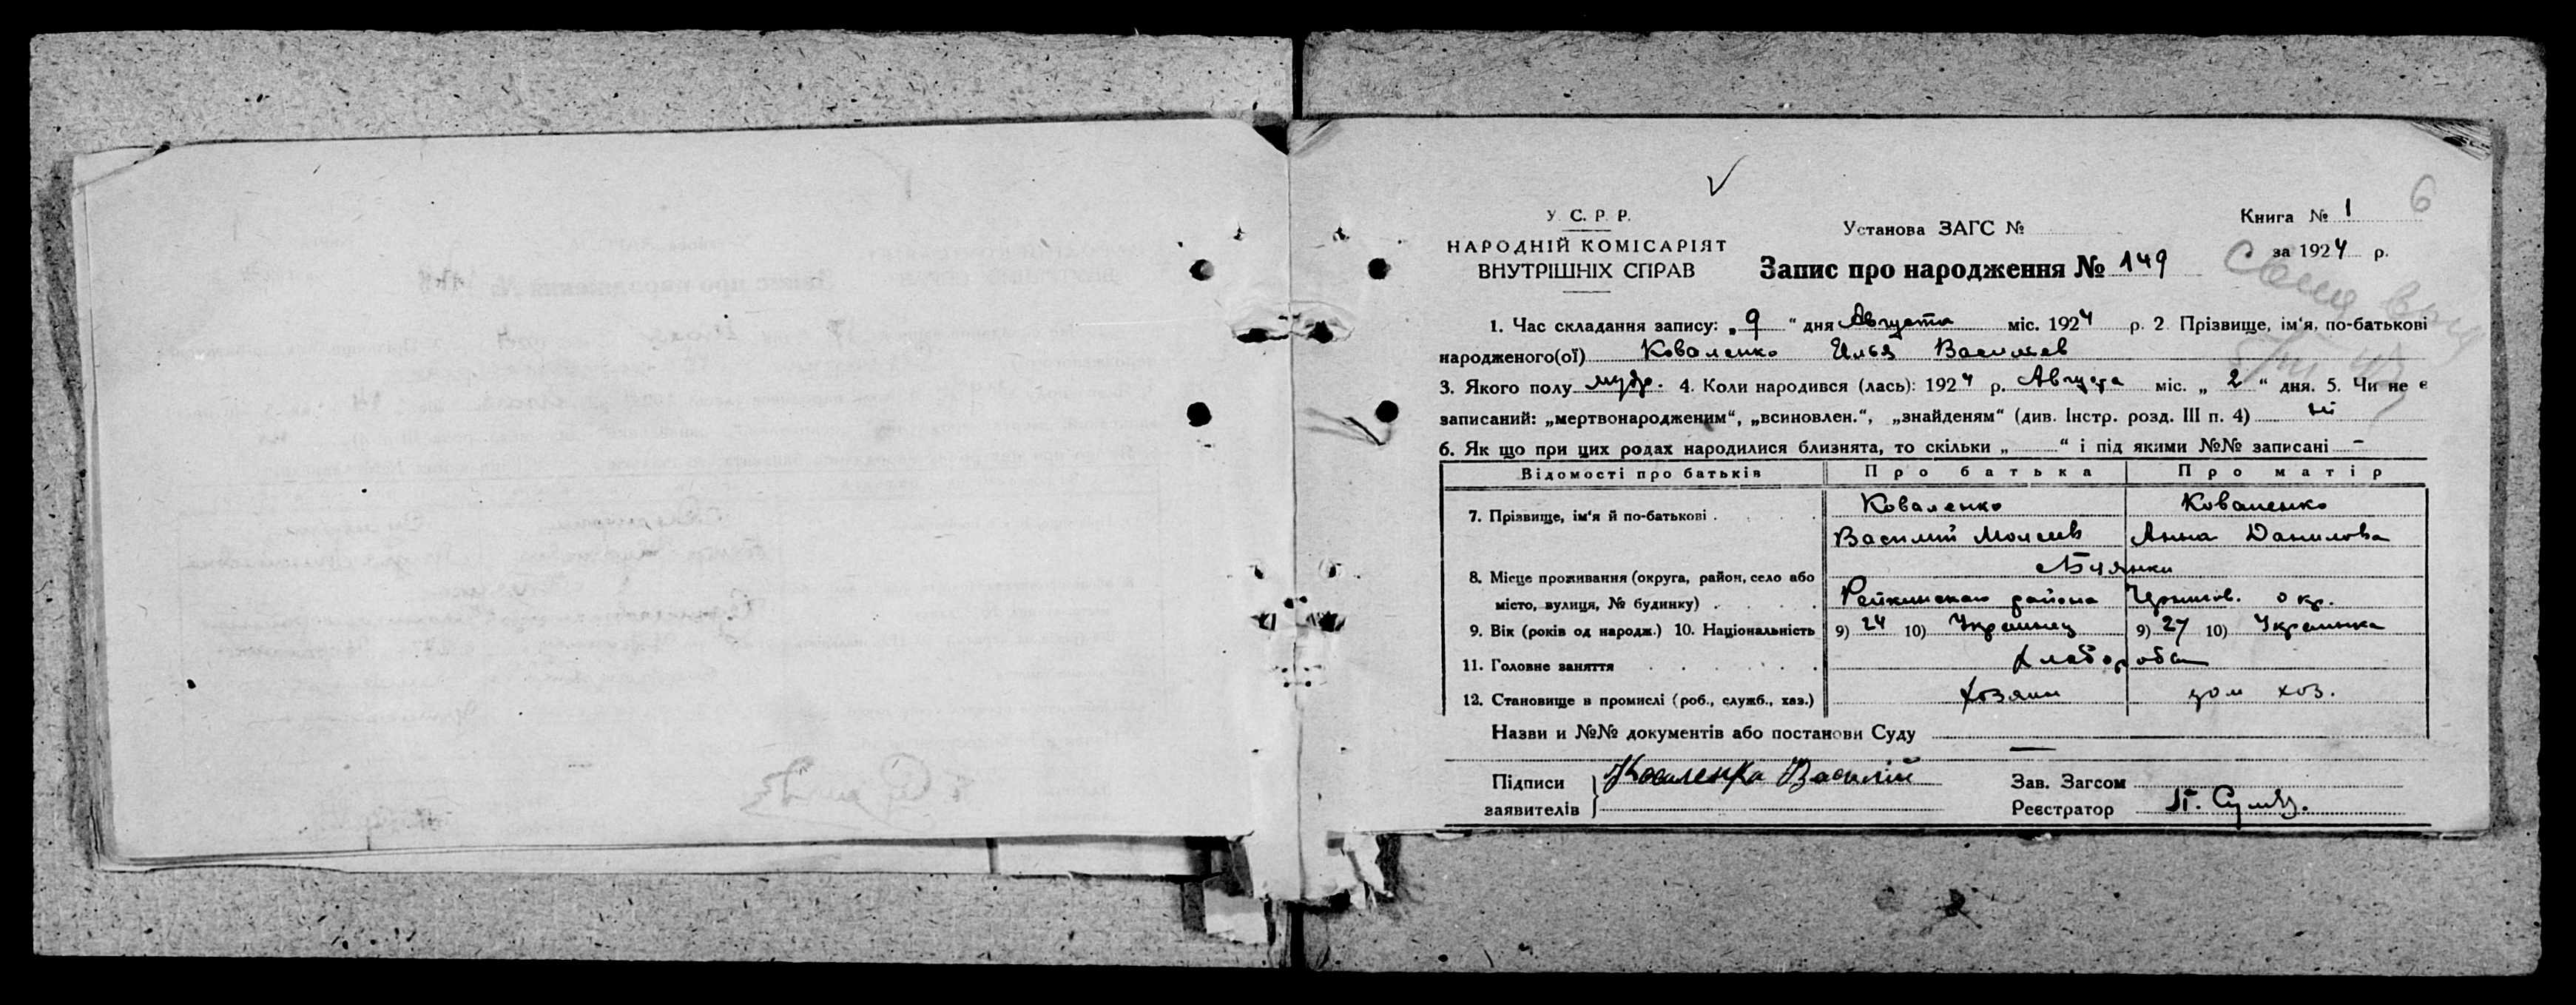 6
У. С. Р. Р.
НАРОДНІЙ КОМІСАРІЯТ
ВНУТРІШНІХ СПРАВ
Установа ЗАГС №
Запис про народження № 149
Книга № 1
за 1924 р.
1. Час складання запису: „ 9 “ дня Августа міс. 1924 р. 2 Прізвище, ім'я, по-батькові
народженого(ої) Коваленко Илья Васильев
3. Якого полу муж. 4. Коли народився (лась): 1924 р. Августа міс. „ 2 “ дня. 5. Чи не є
записаний: „мертвонародженим“, „всиновлен.“, „знайденям“ (див. Інстр. розд. III п. 4) ні
6. Як що при цих родах народилися близнята, то скільки „ “ і під якими №№ записані –
Відомості про батьків Про батька Про матір
7. Прізвище, ім'я й по-батькові . Коваленко Коваленко
Василий Моисеев Анна Данилова
8. Місце проживання (округа, район, село або
місто, вулиця, № будинку) района Чернигов. окр.
9. Вік (років од народж.) 10. Національність 9) 24 10) Украинец 9) 27 10) Украинка
11. Головне заняття хлебороба
12. Становище в промислі (роб., служб., хаз.) хозяин дом хоз.
Назви и №№ документів або постанови Суду —
Підписи
заявителів
Коваленко Василій
Зав. Загсом
Реєстратор